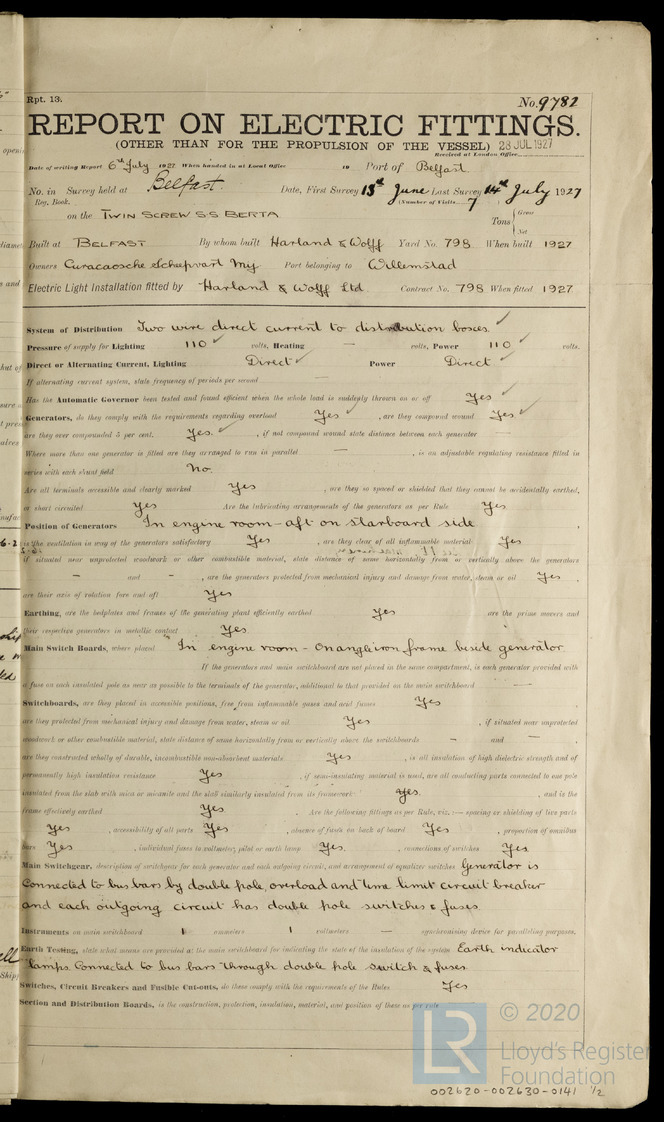 Rpt. 13.
No. 9782
REPORT ON ELECTRIC FITTINGS.
(OTHER THAN FOR THE PROPULSION OF THE VESSEL) 28 JUL 1927
Received at London Office
Date of writing Report 6th July 1927 When handed in at Local Office 19 Port of Belfast
No. in Survey held at Belfast. Date, First Survey 13th June Last Survey 14th July 1927
Reg. Book. (Number of Visits 7
on the TWIN SCREW S.S BERTA Tons Gross Net
Built at BELFAST By whom built Harland & Wolff Yard No. 798 When built 1927
Owners Curacaosche Scheepvart My Port belonging to Willemstad
Electric Light Installation fitted by Harland & Wolff Ltd Contract No. 798 When fitted 1927
System of Distribution Two wire direct current to distribution boxes.
Pressure of supply for Lighting 110 volts, Heating — volts, Power 110 volts.
Direct or Alternating Current, Lighting Direct Power Direct
If alternating current system, state frequency of periods per second —
Has the Automatic Governor been tested and found efficient when the whole load is suddenly thrown on or off Yes
Generators, do they comply with the requirements regarding overload Yes, are they compound wound Yes
are they over compounded 5 per cent. Yes., if not compound wound state distance between each generator —
Where more than one generator is fitted are they arranged to run in parallel —, is an adjustable regulating resistance fitted in
series with each shunt field No.
Are all terminals accessible and clearly marked Yes, are they so spaced or shielded that they cannot be accidentally earthed,
or short circuited Yes Are the lubricating arrangements of the generators as per Rule Yes
Position of Generators In engine room - aft on starboard side
is the ventilation in way of the generators satisfactory Yes, are they clear of all inflammable material Yes
if situated near unprotected woodwork or other combustible material, state distance of same horizontally from or vertically above the generators
— and —, are the generators protected from mechanical injury and damage from water, steam or oil Yes,
are their axis of rotation fore and aft Yes
Earthing, are the bedplates and frames of the generating plant efficiently earthed Yes are the prime movers and
their respective generators in metallic contact Yes
Main Switch Boards, where placed In engine room - On angle iron frame beside generator.
If the generators and main switchboard are not placed in the same compartment, is each generator provided with
a fuse on each insulated pole as near as possible to the terminals of the generator, additional to that provided on the main switchboard —
Switchboards, are they placed in accessible positions, free from inflammable gases and acid fumes Yes
are they protected from mechanical injury and damage from water, steam or oil Yes, if situated near unprotected
woodwork or other combustible material, state distance of same horizontally from or vertically above the switchboards — and —,
are they constructed wholly of durable, incombustible non-absorbent materials Yes, is all insulation of high dielectric strength and of
permanently high insulation resistance Yes, if semi-insulating material is used, are all conducting parts connected to one pole
insulated from the slab with mica or micanite and the slab similarly insulated from its framework yes., and is the
frame effectively earthed Yes. Are the following fittings as per Rule, viz.:— spacing or shielding of live parts
Yes, accessibility of all parts Yes, absence of fuses on back of board Yes, proportion of omnibus
bars Yes, individual fuses to voltmeter, pilot or earth lamp Yes., connections of switches Yes.
Main Switchgear, description of switchgear for each generator and each outgoing circuit, and arrangement of equalizer switches Generator is
Connected to bus bars by double pole, overload and time limit circuit breaker
and each outgoing circuit has double pole switches & fuses.
Instruments on main switchboard 1 ammeters 1 voltmeters — synchronising device for paralleling purposes.
Earth Testing, state what means are provided at the main switchboard for indicating the state of the insulation of the system Earth indicator
lamps. Connected to bus bars through double pole switch & fuses.
Switches, Circuit Breakers and Fusible Cut-outs, do these comply with the requirements of the Rules Yes
Section and Distribution Boards, is the construction, protection, insulation, material, and position of these as per rule
LR © 2020
Lloyd's Register
Foundation
002620-002630-0141 1/2